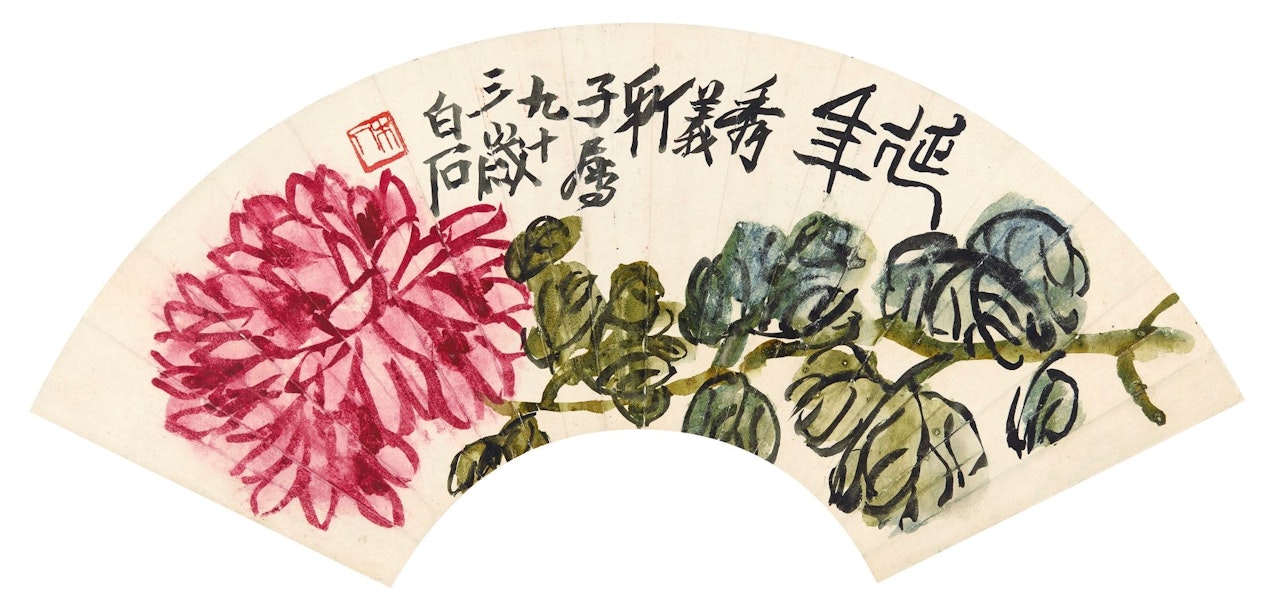 延
年
秀
義
子屬
九十
三歲
白石
木人